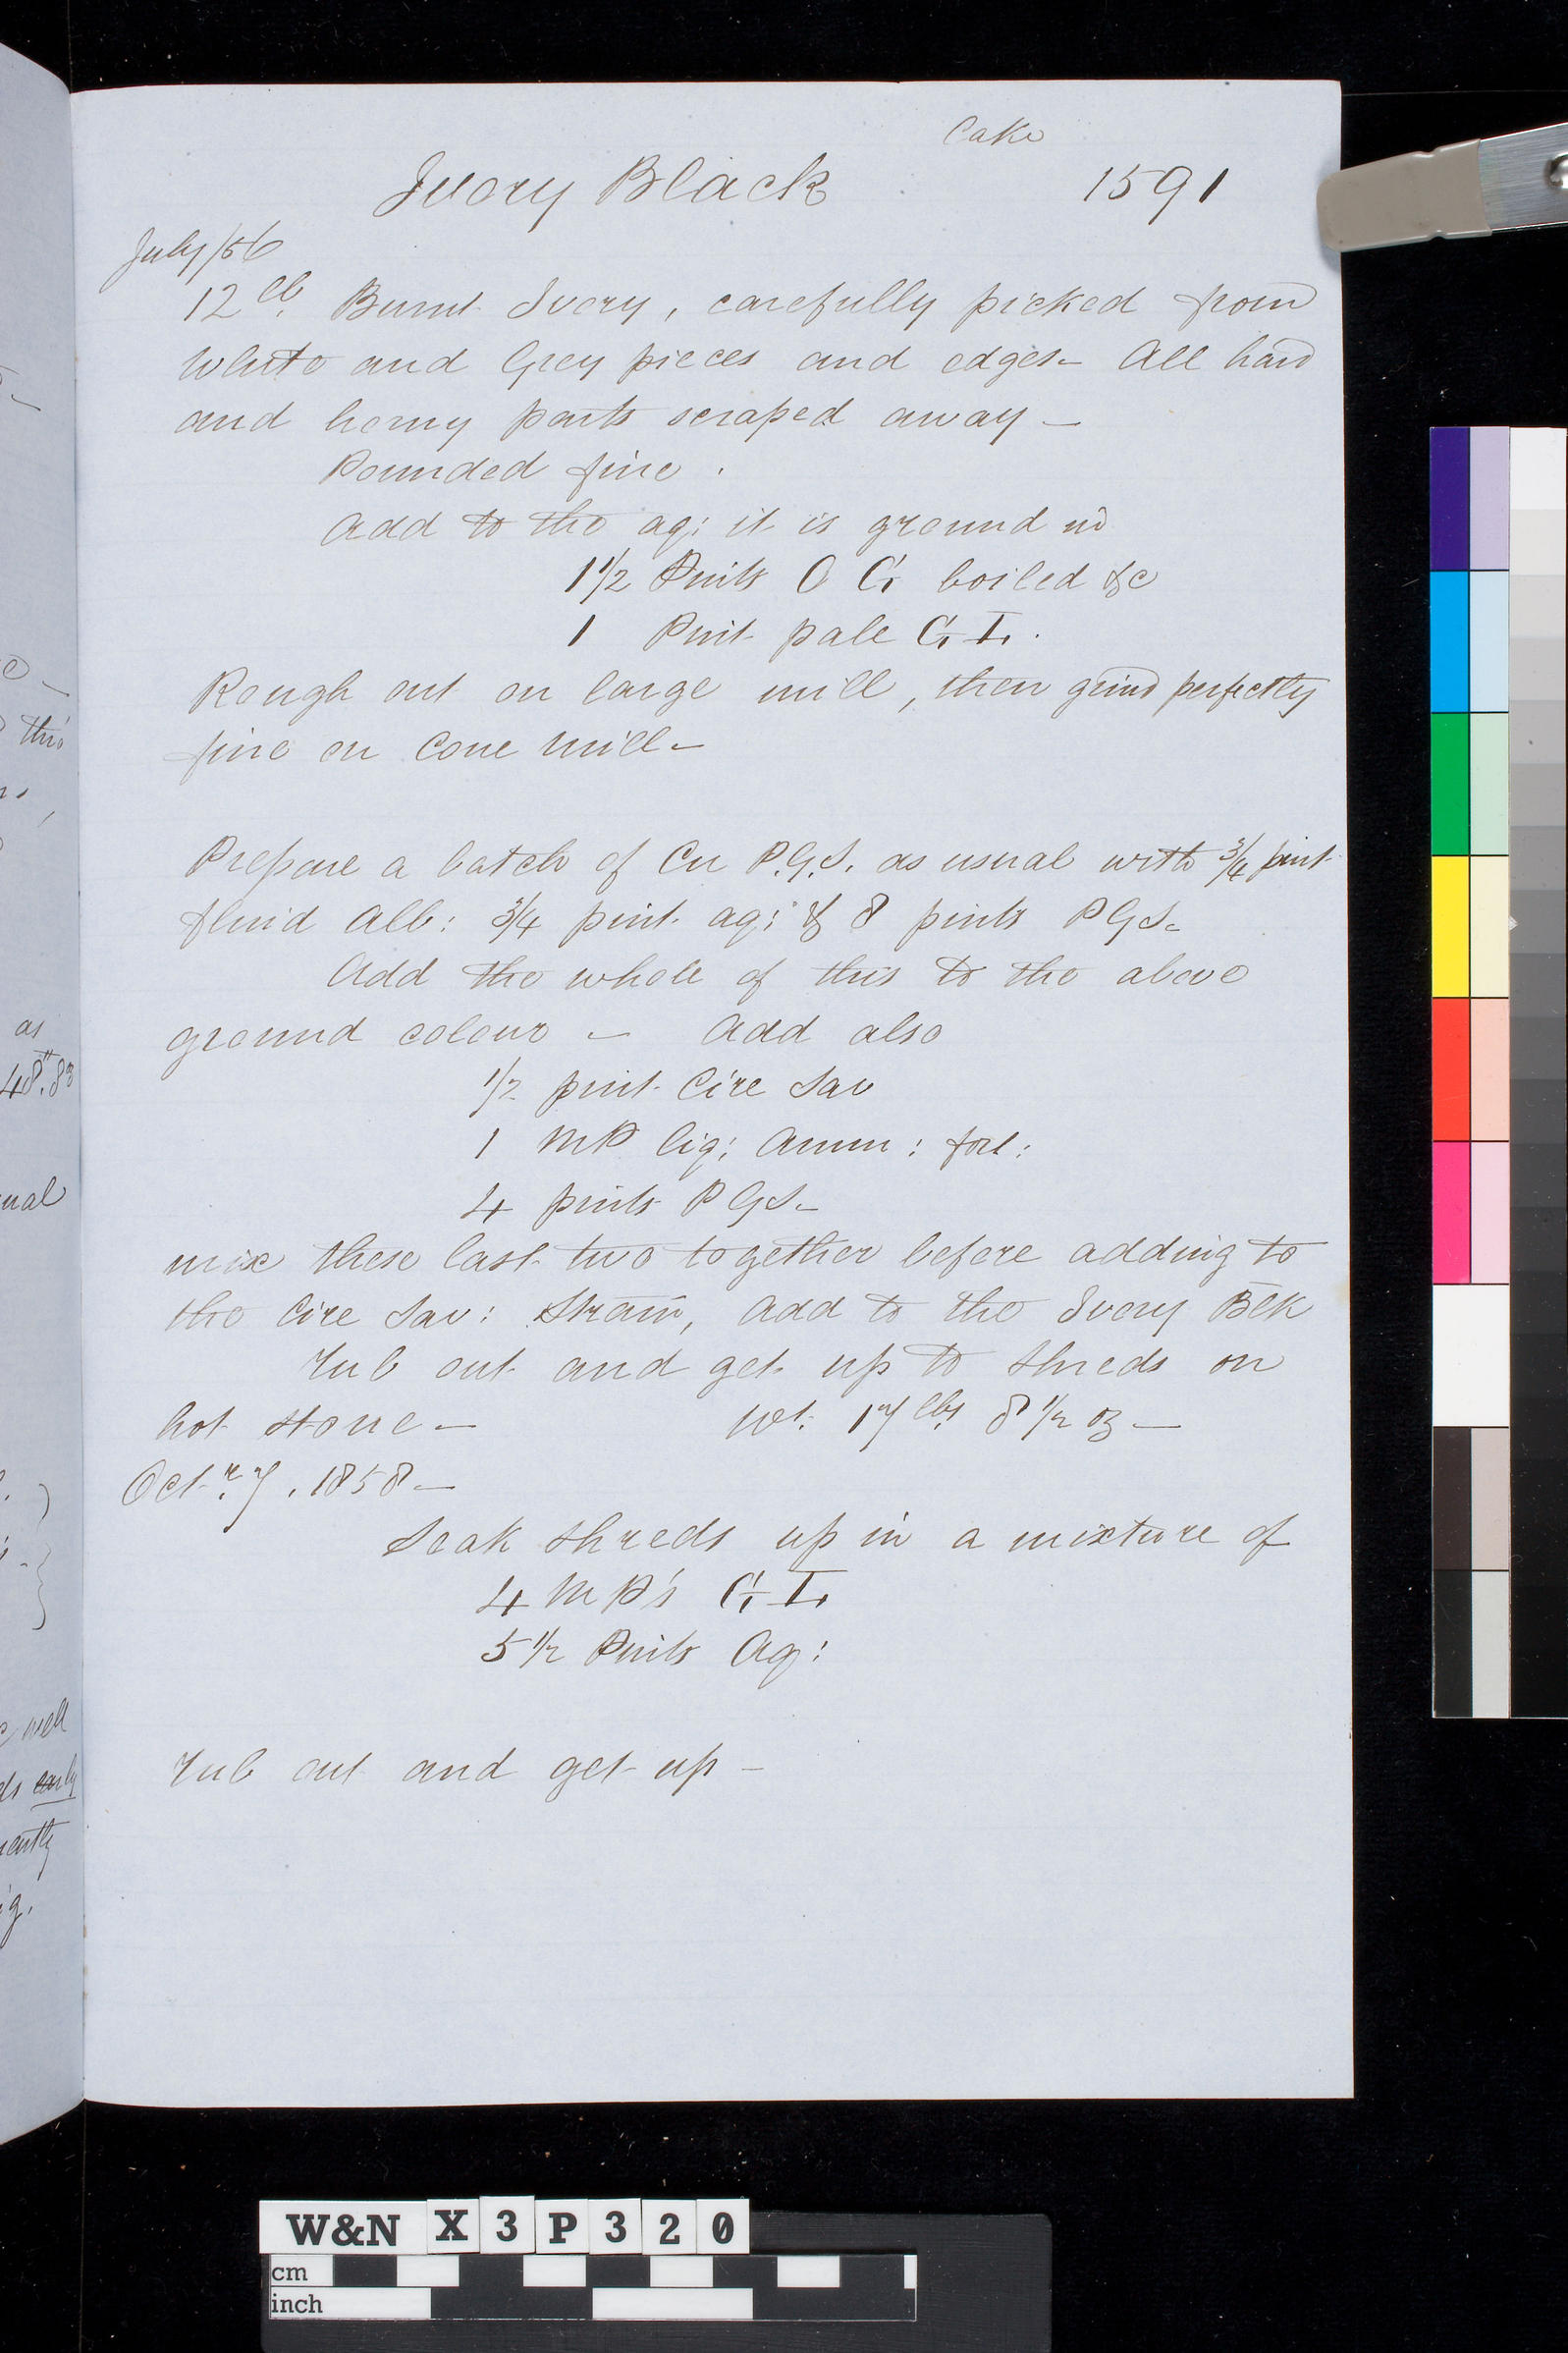 Cake
Ivory Black 1591
July/56
12 lb. Burnt Ivory, carefully picked from
White and Grey pieces and edges - All hard
and horny parts scraped away -
Pounded fine.
Add to the aq: it is ground in
1 1/2 Pints O G boiled &c
1 Pint pale G T.
Rough out on large mill, then grind perfectly
fine on Cone Mill -
Prepare a batch of Cu P.G.S. as usual with 3/4 pint
fluid Alb: 3/4 pint aq: & 8 pints P G S -
Add the whole of this to the above
ground colour - Add also
1/2 pint Cire Sav
1 MP liq: Amm: fort:
4 pints P G S -
mix these last two together before adding to
the Cire Sav: Strain, Add to the Ivory Blk
Tub out and get up to Shreds on
hot stone - Wt. 17 lbs. 8 1/2 oz -
Octr. 7, 1858 -
Soak Shreds up in a mixture of
4 M P's G T.
5 1/2 Pints Aq:
Tub out and get up -
this
as
48.
ual
well
early
W&N X 3 P 3 2 0
cm
inch